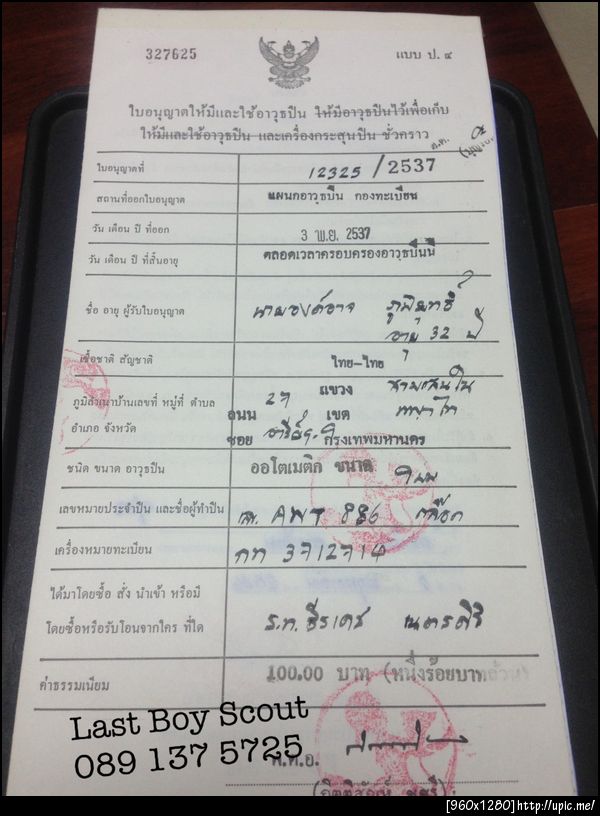 327625
แบบ ป. ๔
ใบอนุญาตให้มีและใช้อาวุธปืน ให้มีอาวุธปืนไว้เพื่อเก็บ
ให้มีและใช้อาวุธปืน และเครื่องกระสุนปืน ชั่วคราว
ใบอนุญาตที่ 12325/2537
สถานที่ออกใบอนุญาต แผนกอาวุธปืน กองทะเบียน
วัน เดือน ปี ที่ออก 3 พ.ย. 2537
วัน เดือน ปี ที่สิ้นอายุ ตลอดเวลาครอบครองอาวุธปืนนี้
ชื่อ อายุ ผู้รับใบอนุญาต นายองค์อาจ
อายุ 32 ปี
เชื้อชาติ สัญชาติ ไทย-ไทย
ภูมิลำเนาบ้านเลขที่ หมู่ที่ ตำบล 27 แขวง สามเสนใน
ถนน เขต พญาไท
อำเภอ จังหวัด ซอย กรุงเทพมหานคร
ชนิด ขนาด อาวุธปืน ออโตเมติก ขนาด 9 มม
เลขหมายประจำปืน และชื่อผู้ทำปืน AWT 886 กล๊อก
เครื่องหมายทะเบียน กท 3712714
ได้มาโดยซื้อ สั่ง นำเข้า หรือมี
โดยซื้อหรือรับโอนจากใคร ที่ใด ร.ท. ธีรเดช เนตรศิริ
ค่าธรรมเนียม 100.00 บาท (หนึ่งร้อยบาท
Last Boy Scout
089 137 5725
พ.ต.อ.
[960x1280]http://upic.me/